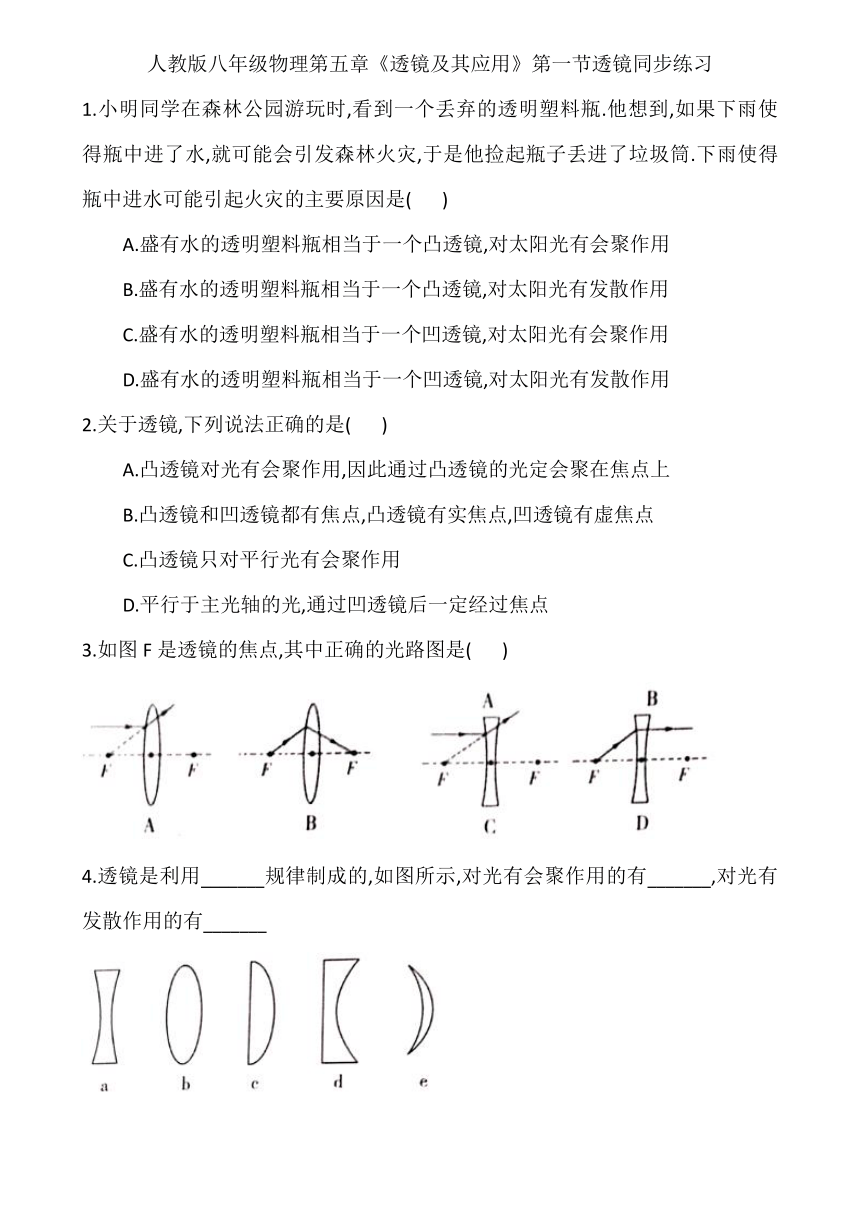 人教版八年级物理第五章《透镜及其应用》第一节透镜同步练习
1.小明同学在森林公园游玩时,看到一个丢弃的透明塑料瓶.他想到,如果下雨使
得瓶中进了水,就可能会引发森林火灾,于是他捡起瓶子丢进了垃圾筒.下雨使得
瓶中进水可能引起火灾的主要原因是( )
A.盛有水的透明塑料瓶相当于一个凸透镜,对太阳光有会聚作用
B.盛有水的透明塑料瓶相当于一个凸透镜,对太阳光有发散作用
C.盛有水的透明塑料瓶相当于一个凹透镜,对太阳光有会聚作用
D.盛有水的透明塑料瓶相当于一个凹透镜,对太阳光有发散作用
2.关于透镜,下列说法正确的是( )
A.凸透镜对光有会聚作用,因此通过凸透镜的光定会聚在焦点上
B.凸透镜和凹透镜都有焦点,凸透镜有实焦点,凹透镜有虚焦点
C.凸透镜只对平行光有会聚作用
D.平行于主光轴的光,通过凹透镜后一定经过焦点
3.如图 F 是透镜的焦点,其中正确的光路图是( )
A B
F F F F F F F F
A B C D
4.透镜是利用______规律制成的,如图所示,对光有会聚作用的有______,对光有
发散作用的有______
a b c d e